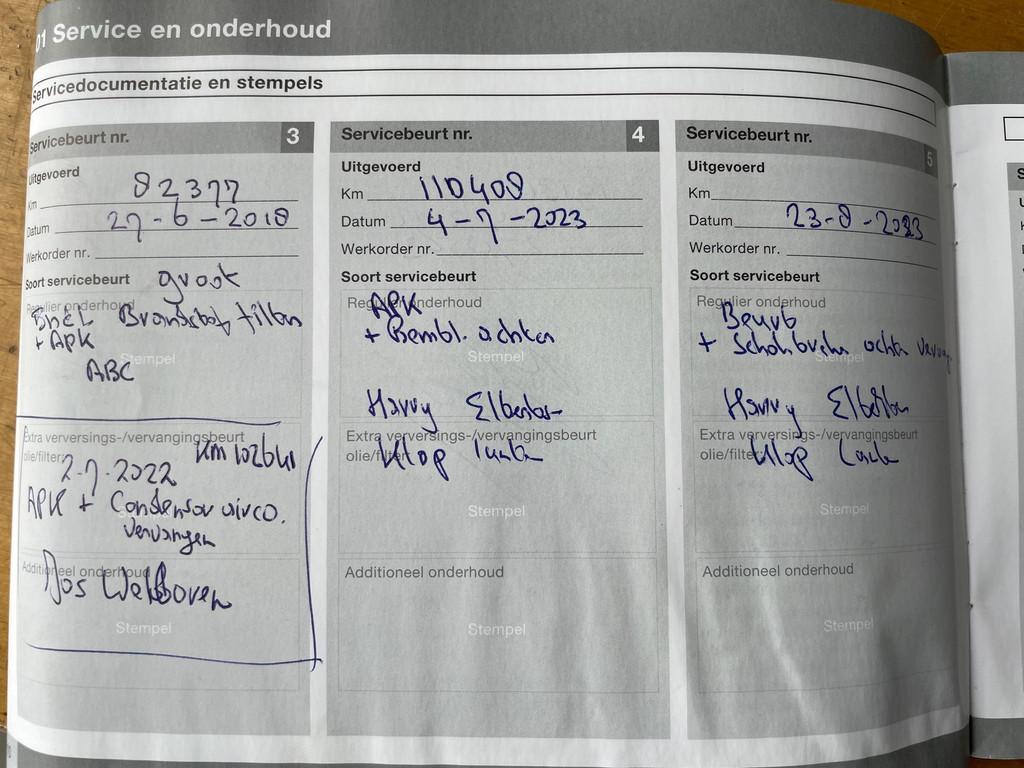 01 Service en onderhoud
Servicedocumentatie en stempels
Servicebeurt nr. 3
Uitgevoerd
Km 82377
Datum 27-6-2018
Werkorder nr.
Soort servicebeurt groot
Regulier onderhoud
Brandstof filter
+ APK
Stempel
ABC
Extra verversings-/vervangingsbeurt
olie/filter:
Km
2-7-2022
APK + Condensor airco.
vervangen
Additioneel onderhoud
Jos
Stempel
Servicebeurt nr. 4
Uitgevoerd
Km 110408
Datum 4-7-2023
Werkorder nr.
Soort servicebeurt
Regulier onderhoud
APK
+ Rembl. achter
Stempel
Harry
Extra verversings-/vervangingsbeurt
olie/filter:
Stempel
Additioneel onderhoud
Stempel
Servicebeurt nr. 5
Uitgevoerd
Km
Datum 23-8-2023
Werkorder nr.
Soort servicebeurt
Regulier onderhoud
Beurt
+ achter
Stempel
Harry
Extra verversings-/vervangingsbeurt
olie/filter:
Stempel
Additioneel onderhoud
Stempel